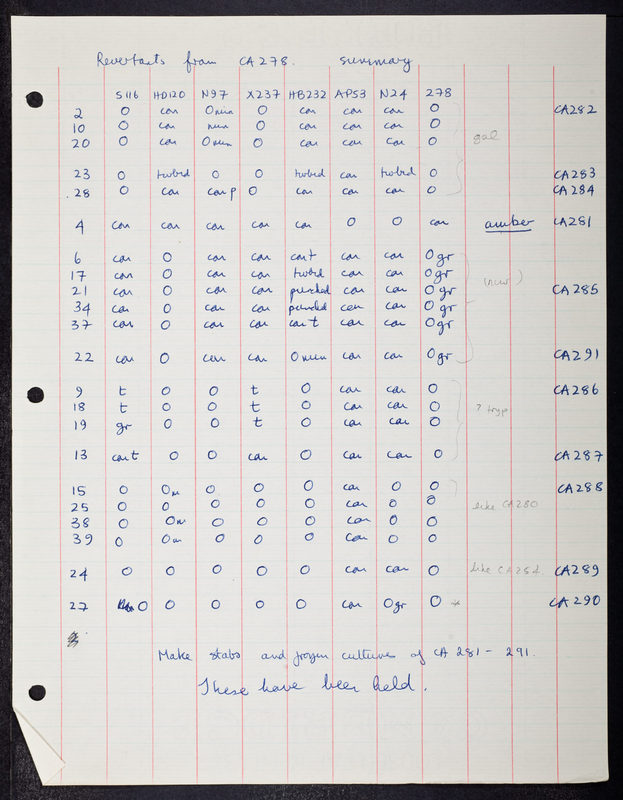 Revertants from CA278. summary
S116 HD120 N97 X237 HB232 AP53 N24 278
2 O con O min O con con con O CA282
10 O con min O con con con O
20 O con O min O con con con O gal
23 O turbid O O turbid con turbid O CA283
28 O con con p O con con con O CA284
4 con con con con con O O con amber CA281
6 con O con con con t con con O gr
17 con O con con turbid con con O gr
21 con O con con punched con con O gr CA285
34 con O con con punched con con O gr
37 con O con con con t con con O gr
22 con O con con O min con con O gr CA291
9 t O O t O con con O CA286
18 t O O t O con con O ? tryp
19 gr O O t O con con O
13 con t O O con O con con O CA287
15 O O m O O O con O O CA288
25 O O O O O con O O like CA280
38 O O m O O O con O O
39 O O m O O O con O O
24 O O O O O con con O like CA254 CA289
27 O O O O O con O gr O * CA290
Make stabs and frozen cultures of CA 281 - 291.
These have been held.